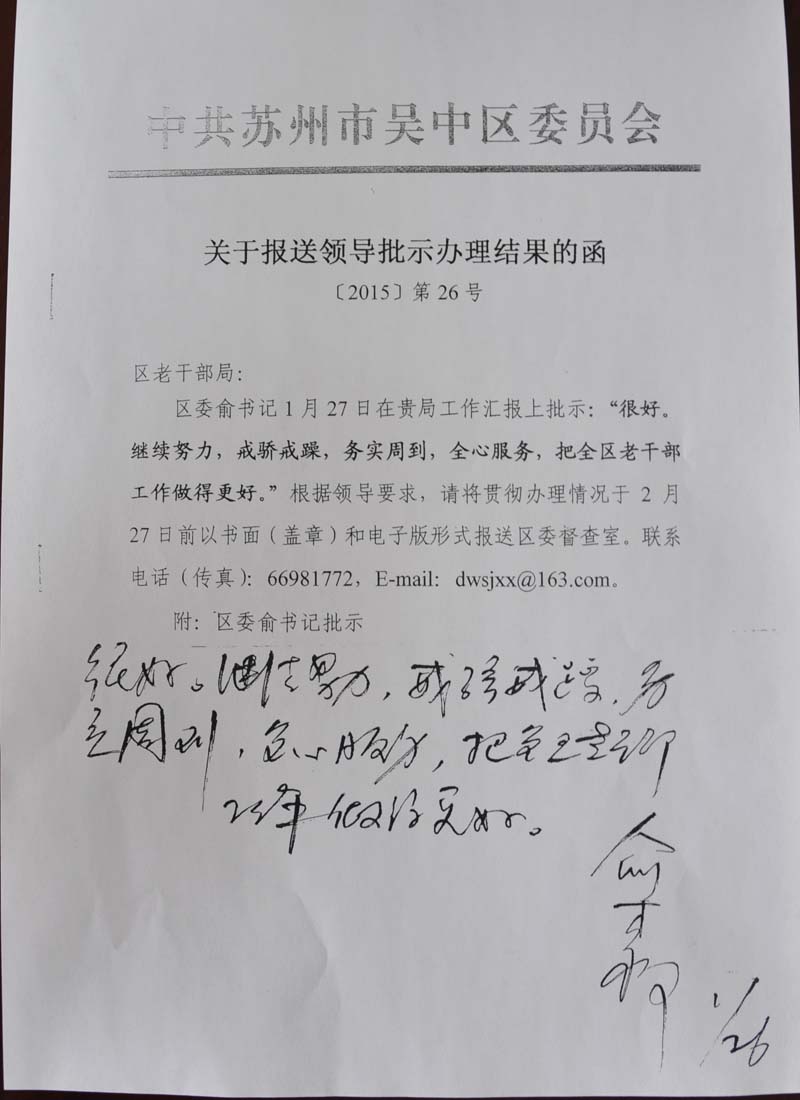 中共苏州市吴中区委员会
关于报送领导批示办理结果的函
〔2015〕第 26 号
区老干部局：
区委俞书记 1 月 27 日在贵局工作汇报上批示：“很好。
继续努力，戒骄戒躁，务实周到，全心服务，把全区老干部
工作做得更好。”根据领导要求，请将贯彻办理情况于 2 月
27 日前以书面（盖章）和电子版形式报送区委督查室。联系
电话（传真）：66981772，E-mail：dwsjxx@163.com。
附：区委俞书记批示
很好。继续努力，戒骄戒躁，务
实周到，全心服务，把全区老干部
工作做得更好。
俞
1/26